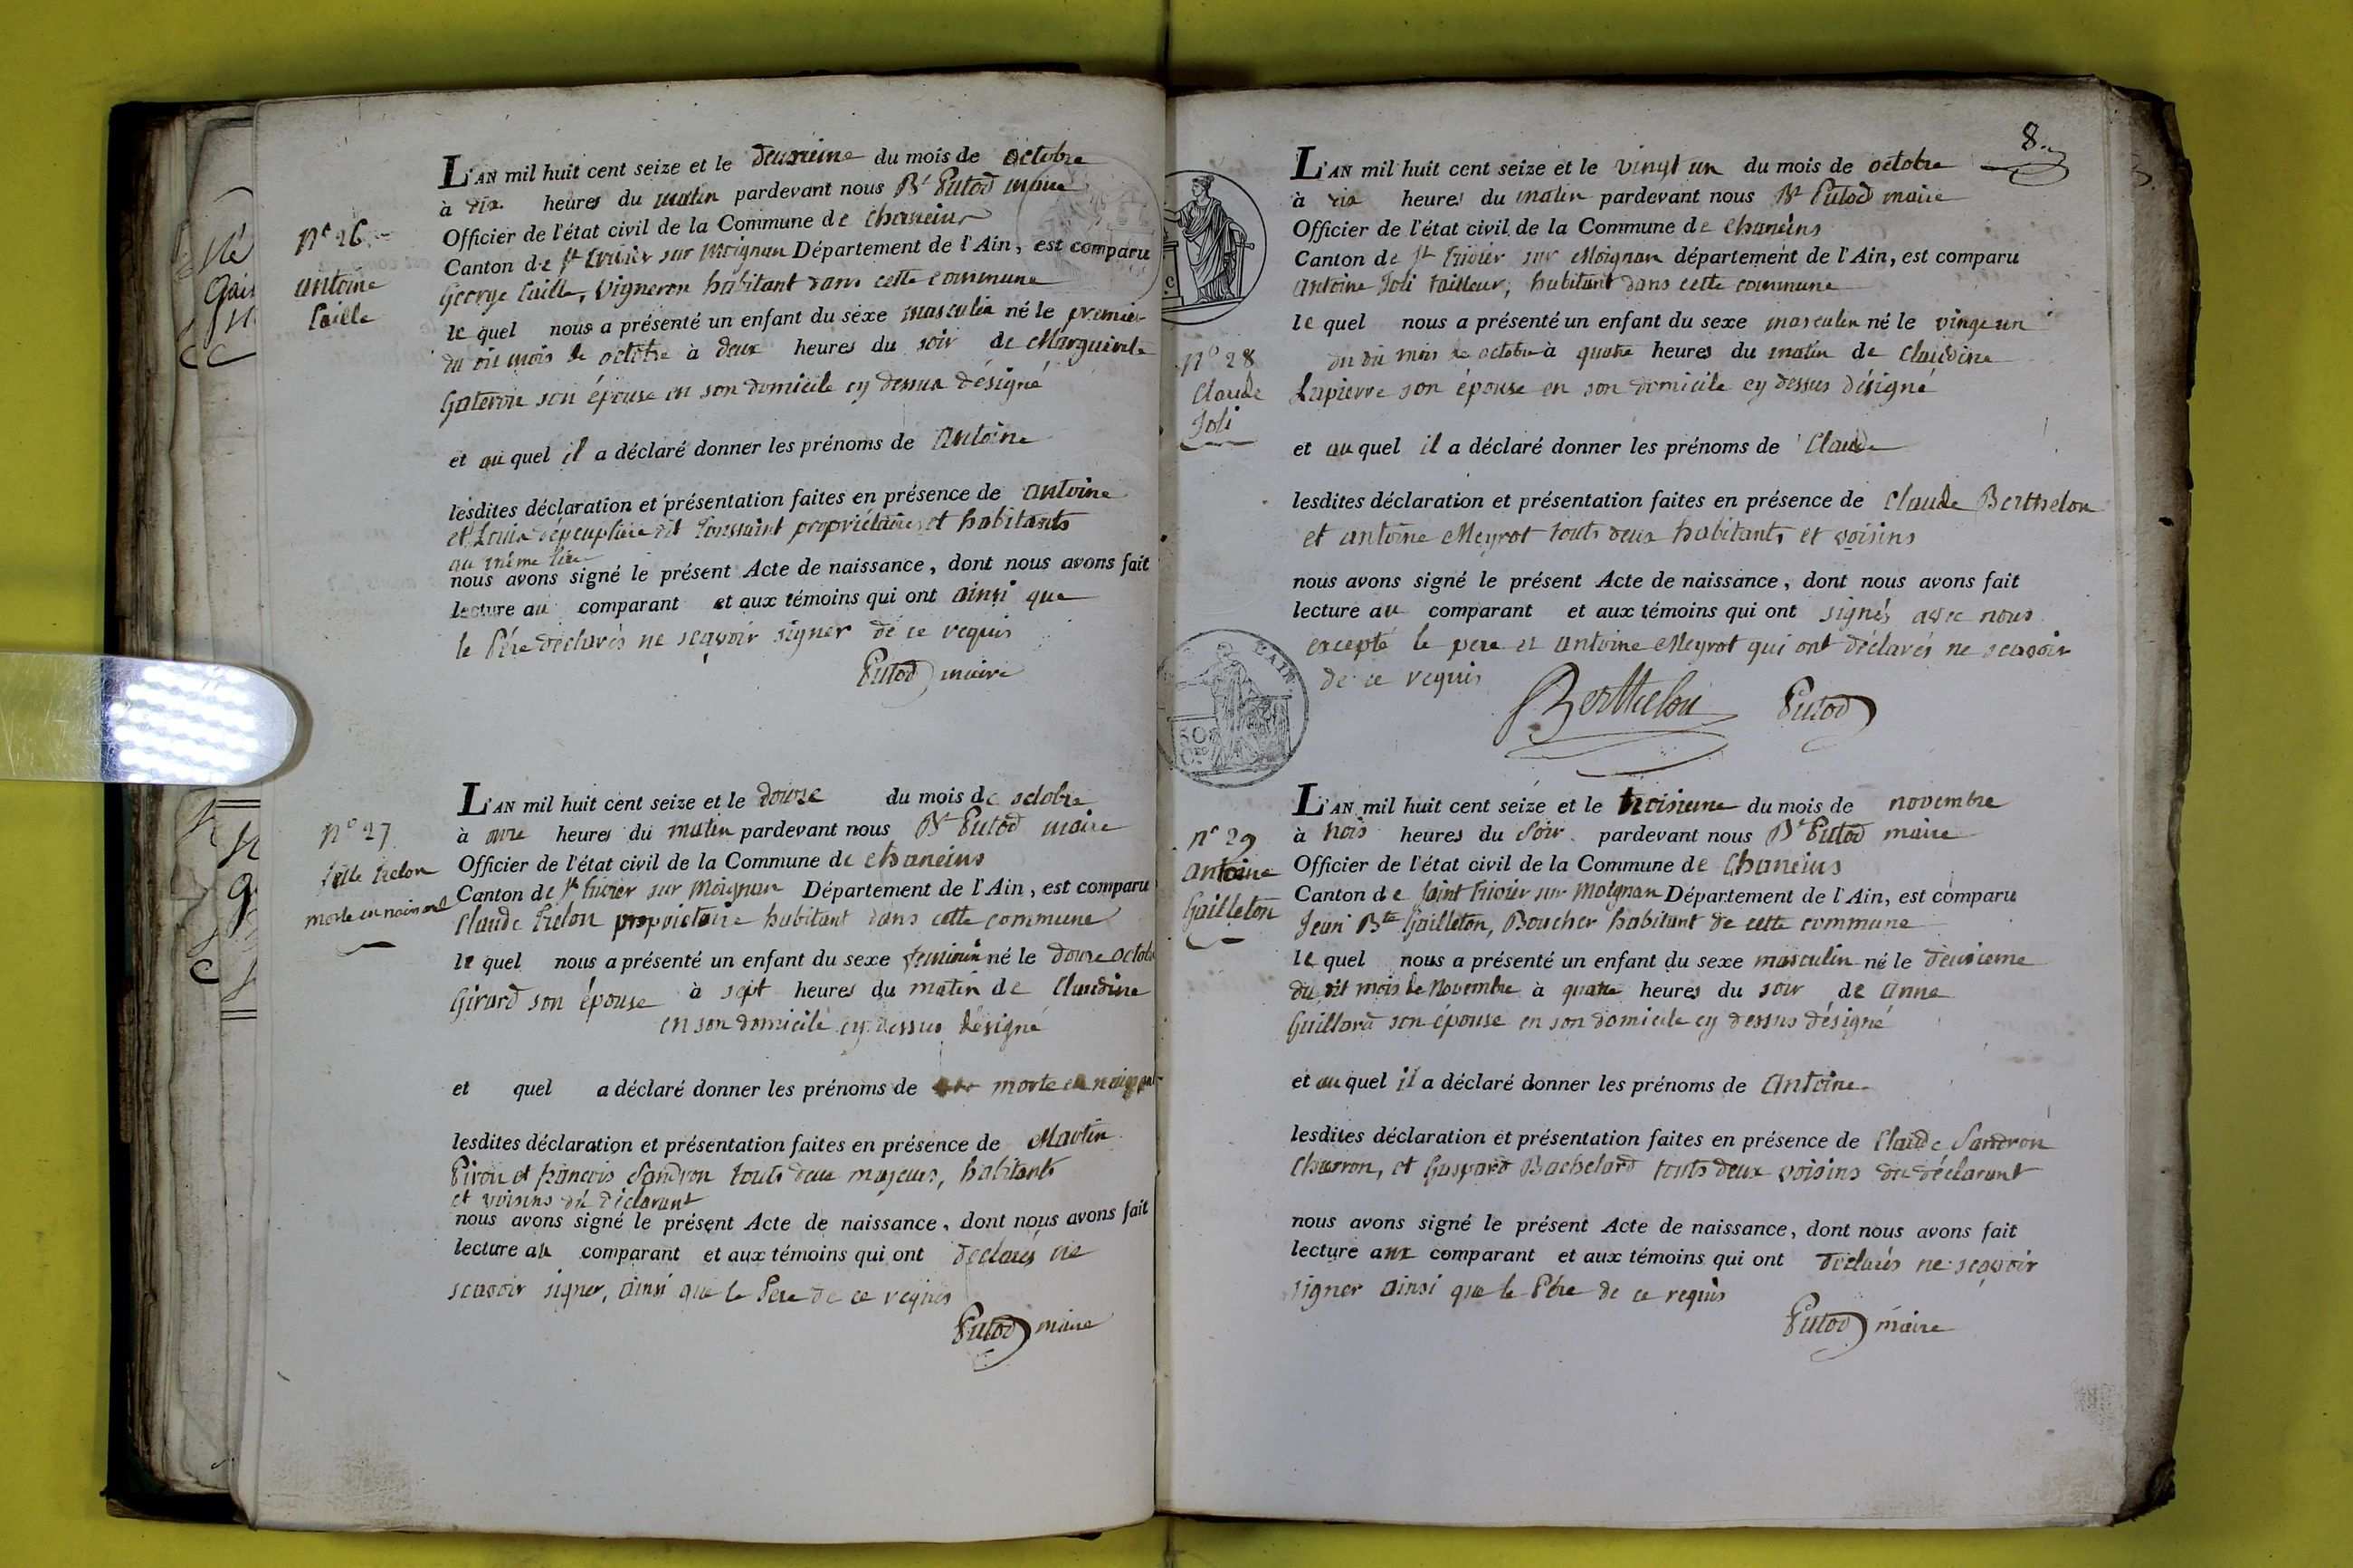 L'AN mil huit cent seize et le deuxieme du mois de octobre
à dix heures du matin pardevant nous Bt Putod maire
Officier de l'état civil de la Commune de chaneins
Canton de St trivier sur Moignan Département de l'Ain, est comparu
George Caille, vigneron habitant dans cette commune
le quel nous a présenté un enfant du sexe masculin né le premier
du dit mois de octobre à deux heures du soir de Marguerite
Gateron son épouse en son domicile cy dessus désigné
et au quel il a déclaré donner les prénoms de antoine
lesdites déclaration et présentation faites en présence de antoine
et Louis dit toussaint propriétaires et habitants
au même lieu
nous avons signé le présent Acte de naissance, dont nous avons fait
lecture au comparant et aux témoins qui ont ainsi que
le Père déclarés ne sçavoir signer de ce requis
Putod maire
N° 26
antoine
Caille
L'AN mil huit cent seize et le douze du mois de octobre
à onze heures du matin pardevant nous Bt Putod maire
Officier de l'état civil de la Commune de chaneins
Canton de St trivier sur Moignan Département de l'Ain, est comparu
Claude trelon propriétaire habitant dans cette commune
le quel nous a présenté un enfant du sexe feminin né le douze octobre
Girard son épouse à sept heures du matin de Claudine
en son domicile cy dessus désigné
et quel a déclaré donner les prénoms de morte en naissant
lesdites déclaration et présentation faites en présence de Martin
Piron et francois Sandron touts deux majeurs, habitants
et voisins du déclarant
nous avons signé le présent Acte de naissance, dont nous avons fait
lecture au comparant et aux témoins qui ont déclarés ne
scavoir signer, ainsi que le Pere de ce requis
Putod maire
N° 27
fille trelon
morte en naissant
8
L'AN mil huit cent seize et le vingt un du mois de octobre
à dix heures du matin pardevant nous Bt Putod maire
Officier de l'état civil de la Commune de chaneins
Canton de St Trivier sur Moignan département de l'Ain, est comparu
antoine Joli tailleur, habitant dans cette commune
le quel nous a présenté un enfant du sexe masculin né le vingt un
du dit mois de octobre à quatre heures du matin de claudine
Lapierre son épouse en son domicile cy dessus désigné
et au quel il a déclaré donner les prénoms de Claude
lesdites déclaration et présentation faites en présence de Claude Berthelon
et antoine Meyrot touts deux habitants et voisins
nous avons signé le présent Acte de naissance, dont nous avons fait
lecture au comparant et aux témoins qui ont signés avec nous
excepté le pere et antoine Meyrot qui ont déclarés ne scavoir
de ce requis
Berthelon Putod
N° 28
Claude
Joli
L'AN mil huit cent seize et le troisieme du mois de novembre
à trois heures du Soir pardevant nous Bt Putod maire
Officier de l'état civil de la Commune de Chaneins
Canton de Saint Trivier sur Moignan Département de l'Ain, est comparu
Jean Bte Gailleton, Boucher habitant de cette commune
le quel nous a présenté un enfant du sexe masculin né le deuxieme
du dit mois de Novembre à quatre heures du soir de anne
Guillard son épouse en son domicile cy dessus désigné
et au quel il a déclaré donner les prénoms de antoine
lesdites déclaration et présentation faites en présence de Claude Sandron
charron, et Gaspard Bachelard touts deux voisins du déclarant
nous avons signé le présent Acte de naissance, dont nous avons fait
lecture aux comparant et aux témoins qui ont déclarés ne sçavoir
signer ainsi que le Père de ce requis
Putod maire
N° 29
Antoine
Gailleton